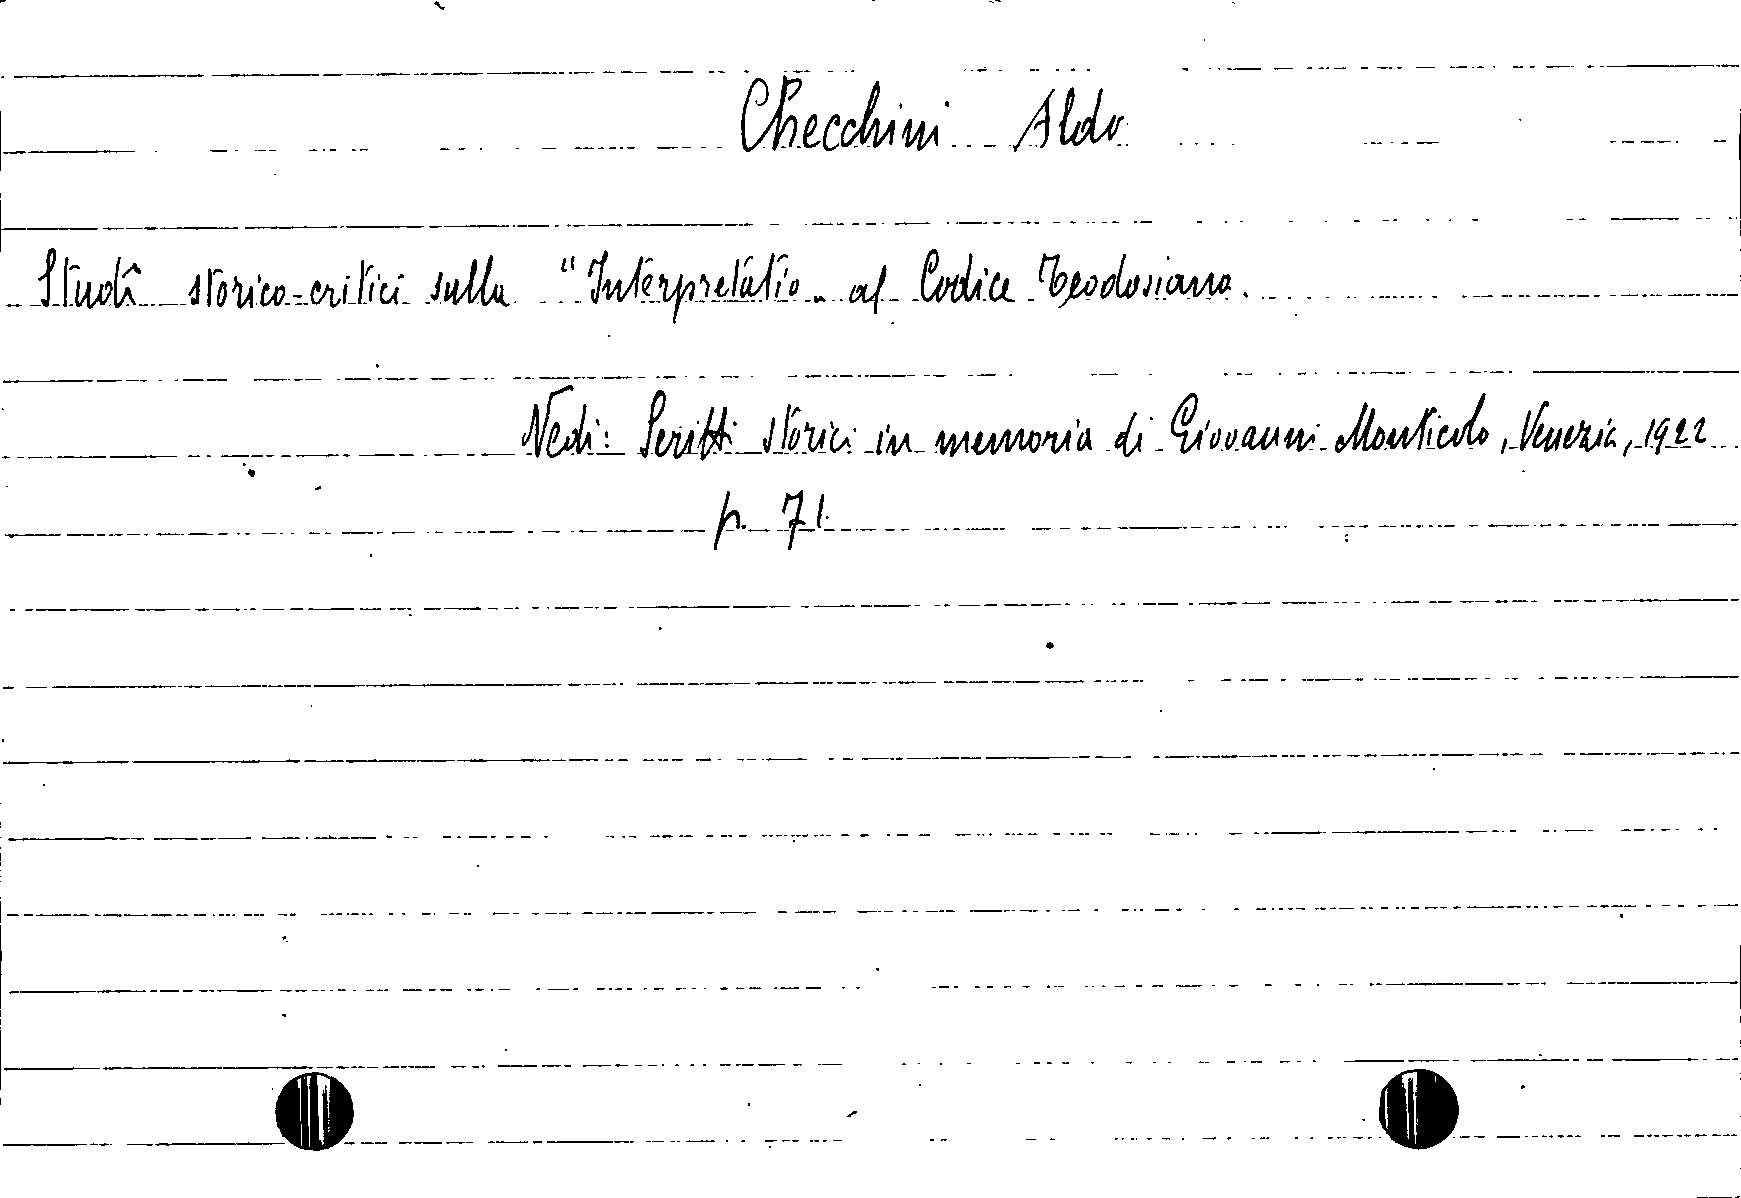 Checchini Aldo
Studî storico-critici sulla "Interpretatio„ al Codice Teodosiano.
Vedi: Scritti storici in memoria di Giovanni Monticolo, Venezia, 1922
p. 71.